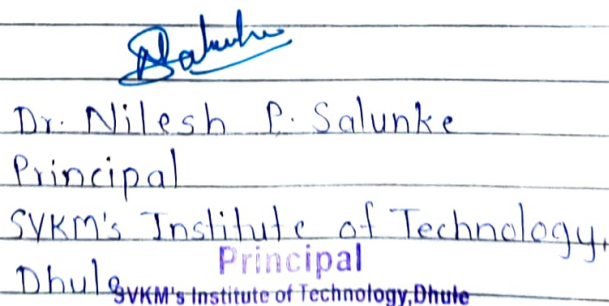 Dr. Nilesh P. Salunke
Principal
SVKM's Institute of Technology,
Dhule
Principal
SVKM's Institute of Technology,Dhule